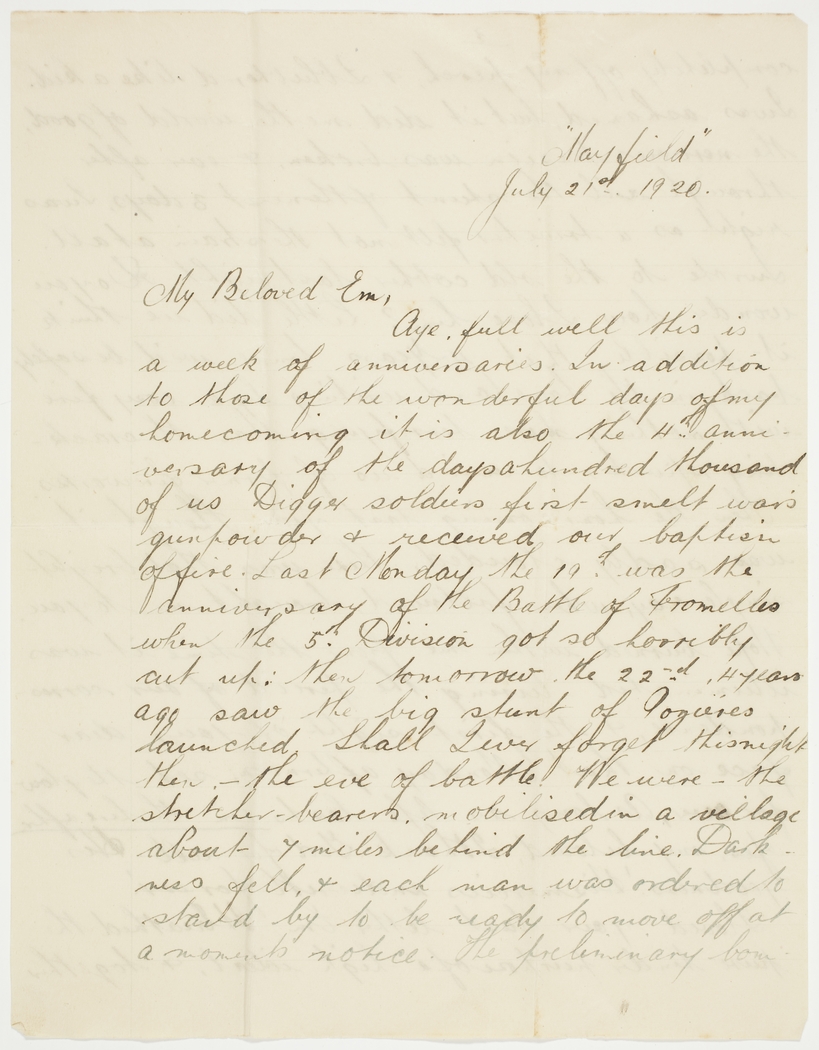 "Mayfield"
July 21st. 1920.
My Beloved Em,
Aye, full well this is
a week of anniversaries. In addition
to those of the wonderful days of my
homecoming it is also the 4th anni-
versary of the days a hundred thousand
of us Digger soldiers first smelt war's
gunpowder & received our baptism
of fire. Last Monday the 19th was the
anniversary of the Battle of Fromelles
when the 5th Division got so horribly
cut up: then tomorrow the 22nd, 4 years
ago saw the big stunt of Pozieres
launched. Shall I ever forget this night
then, – the eve of battle! We were – the
stretcher-bearers, mobilised in a village
about 7 miles behind the line. Dark-
ness fell, & each man was ordered to
stand by to be ready to move off at
a moments notice. The preliminary bom-